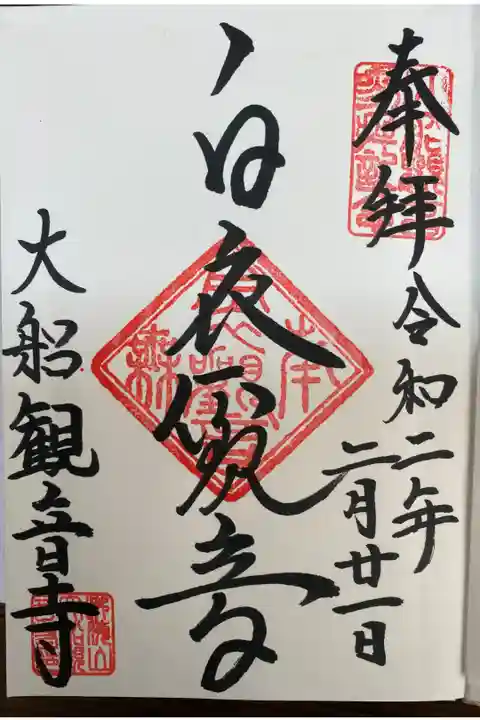 奉拝
令和二年
二月廿一日
白衣観音
大船観音寺